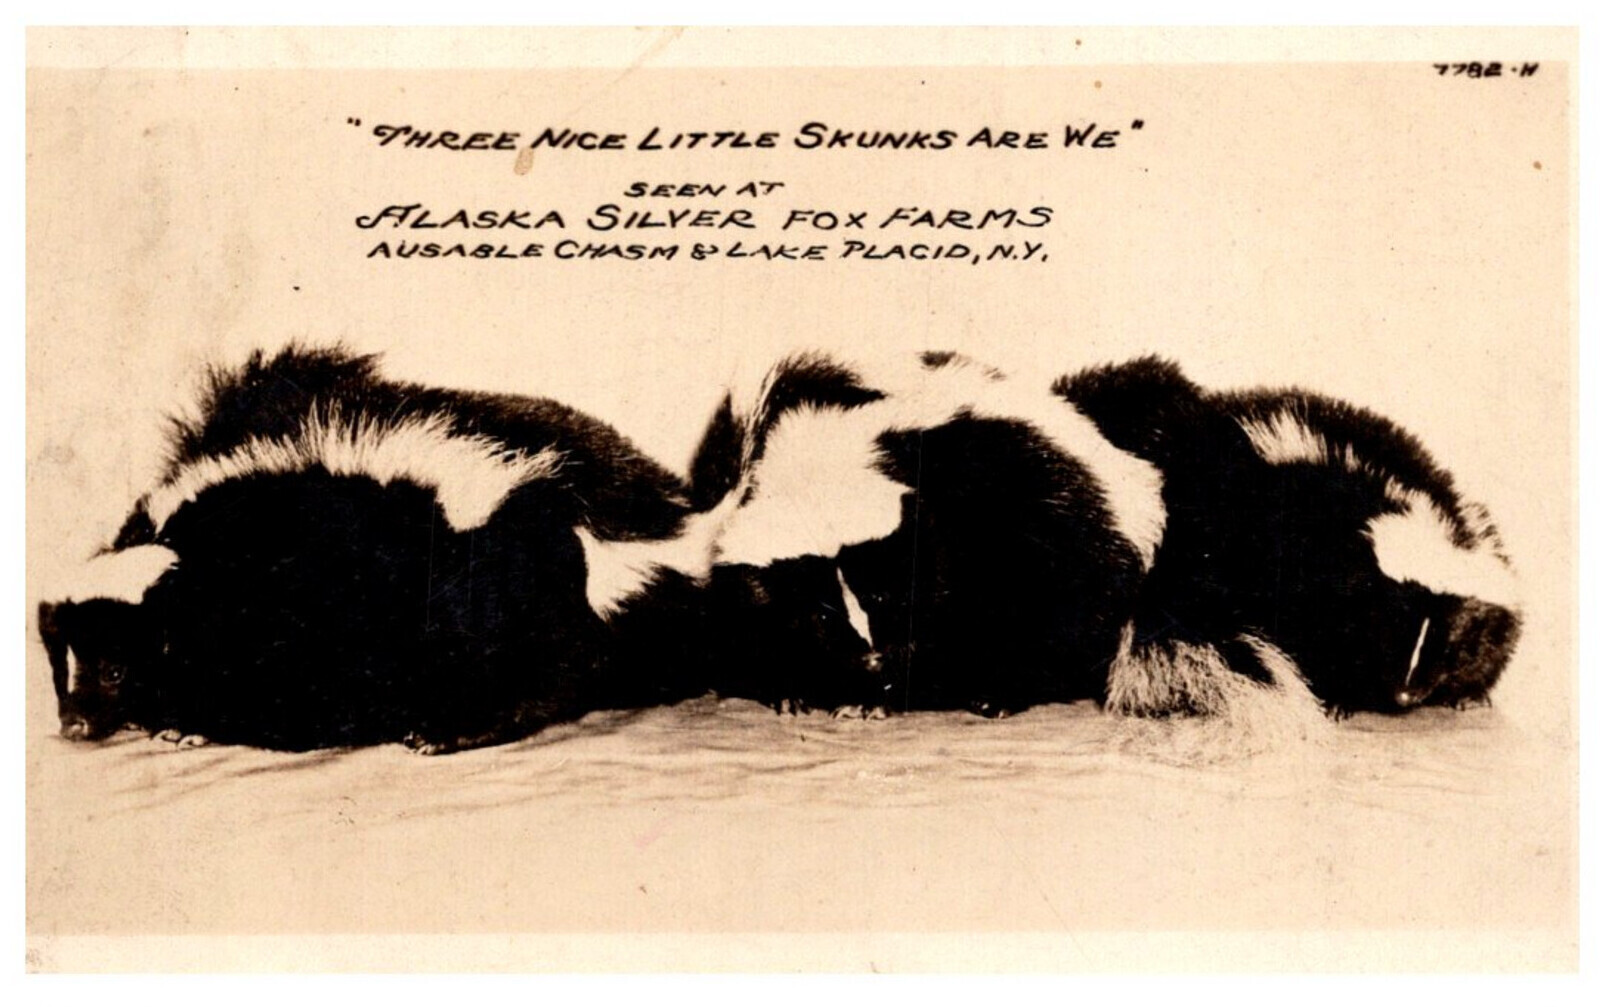 7782-H
"THREE NICE LITTLE SKUNKS ARE WE"
SEEN AT
ALASKA SILVER FOX FARMS
AUSABLE CHASM & LAKE PLACID, N.Y.